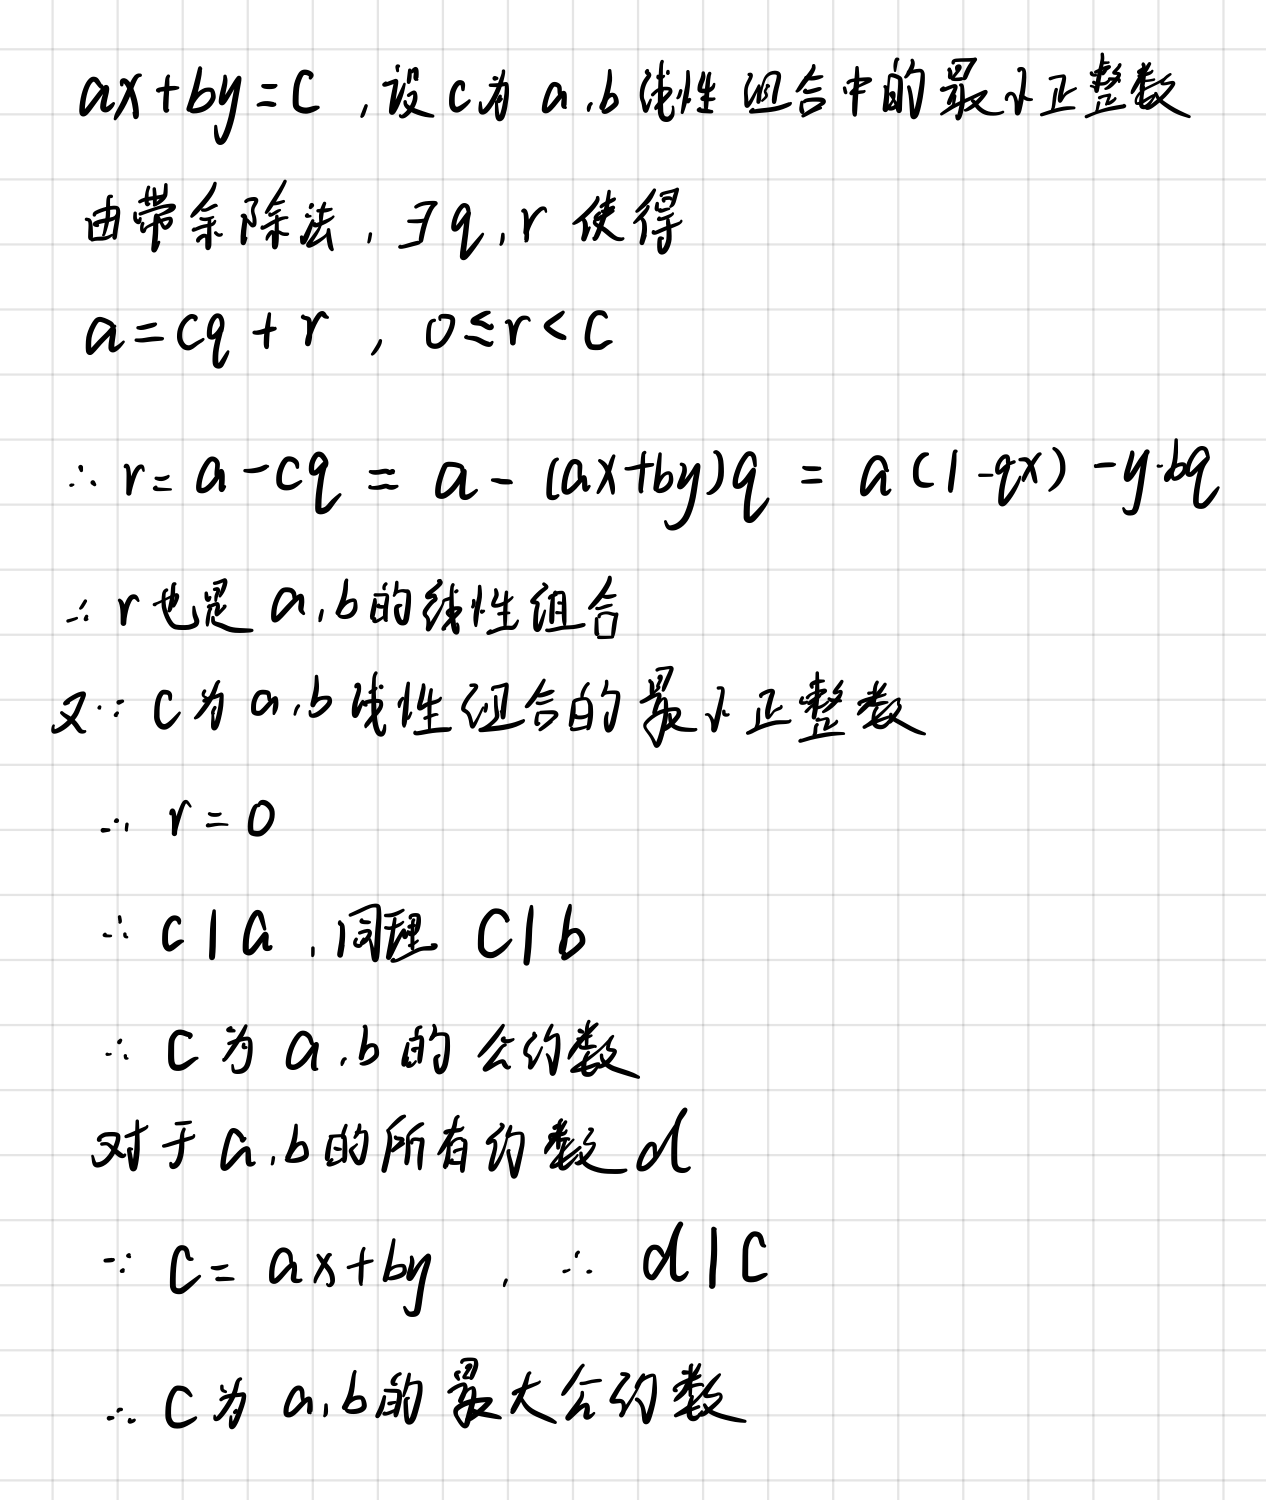 ax+by=c ,设c为 a,b线性组合中的最小正整数
由带余除法,∃q,r 使得
a=cq+r , 0≤r<c
∴ r=a-cq = a-(ax+by)q = a(1-qx)-y·bq
∴ r也是 a,b的线性组合
又∵ c为a,b线性组合的最小正整数
∴ r=0
∴ c|a ,同理 c|b
∴ c为 a,b的公约数
对于a,b的所有约数d
∵ c=ax+by , ∴ d|c
∴ c为 a,b的最大公约数